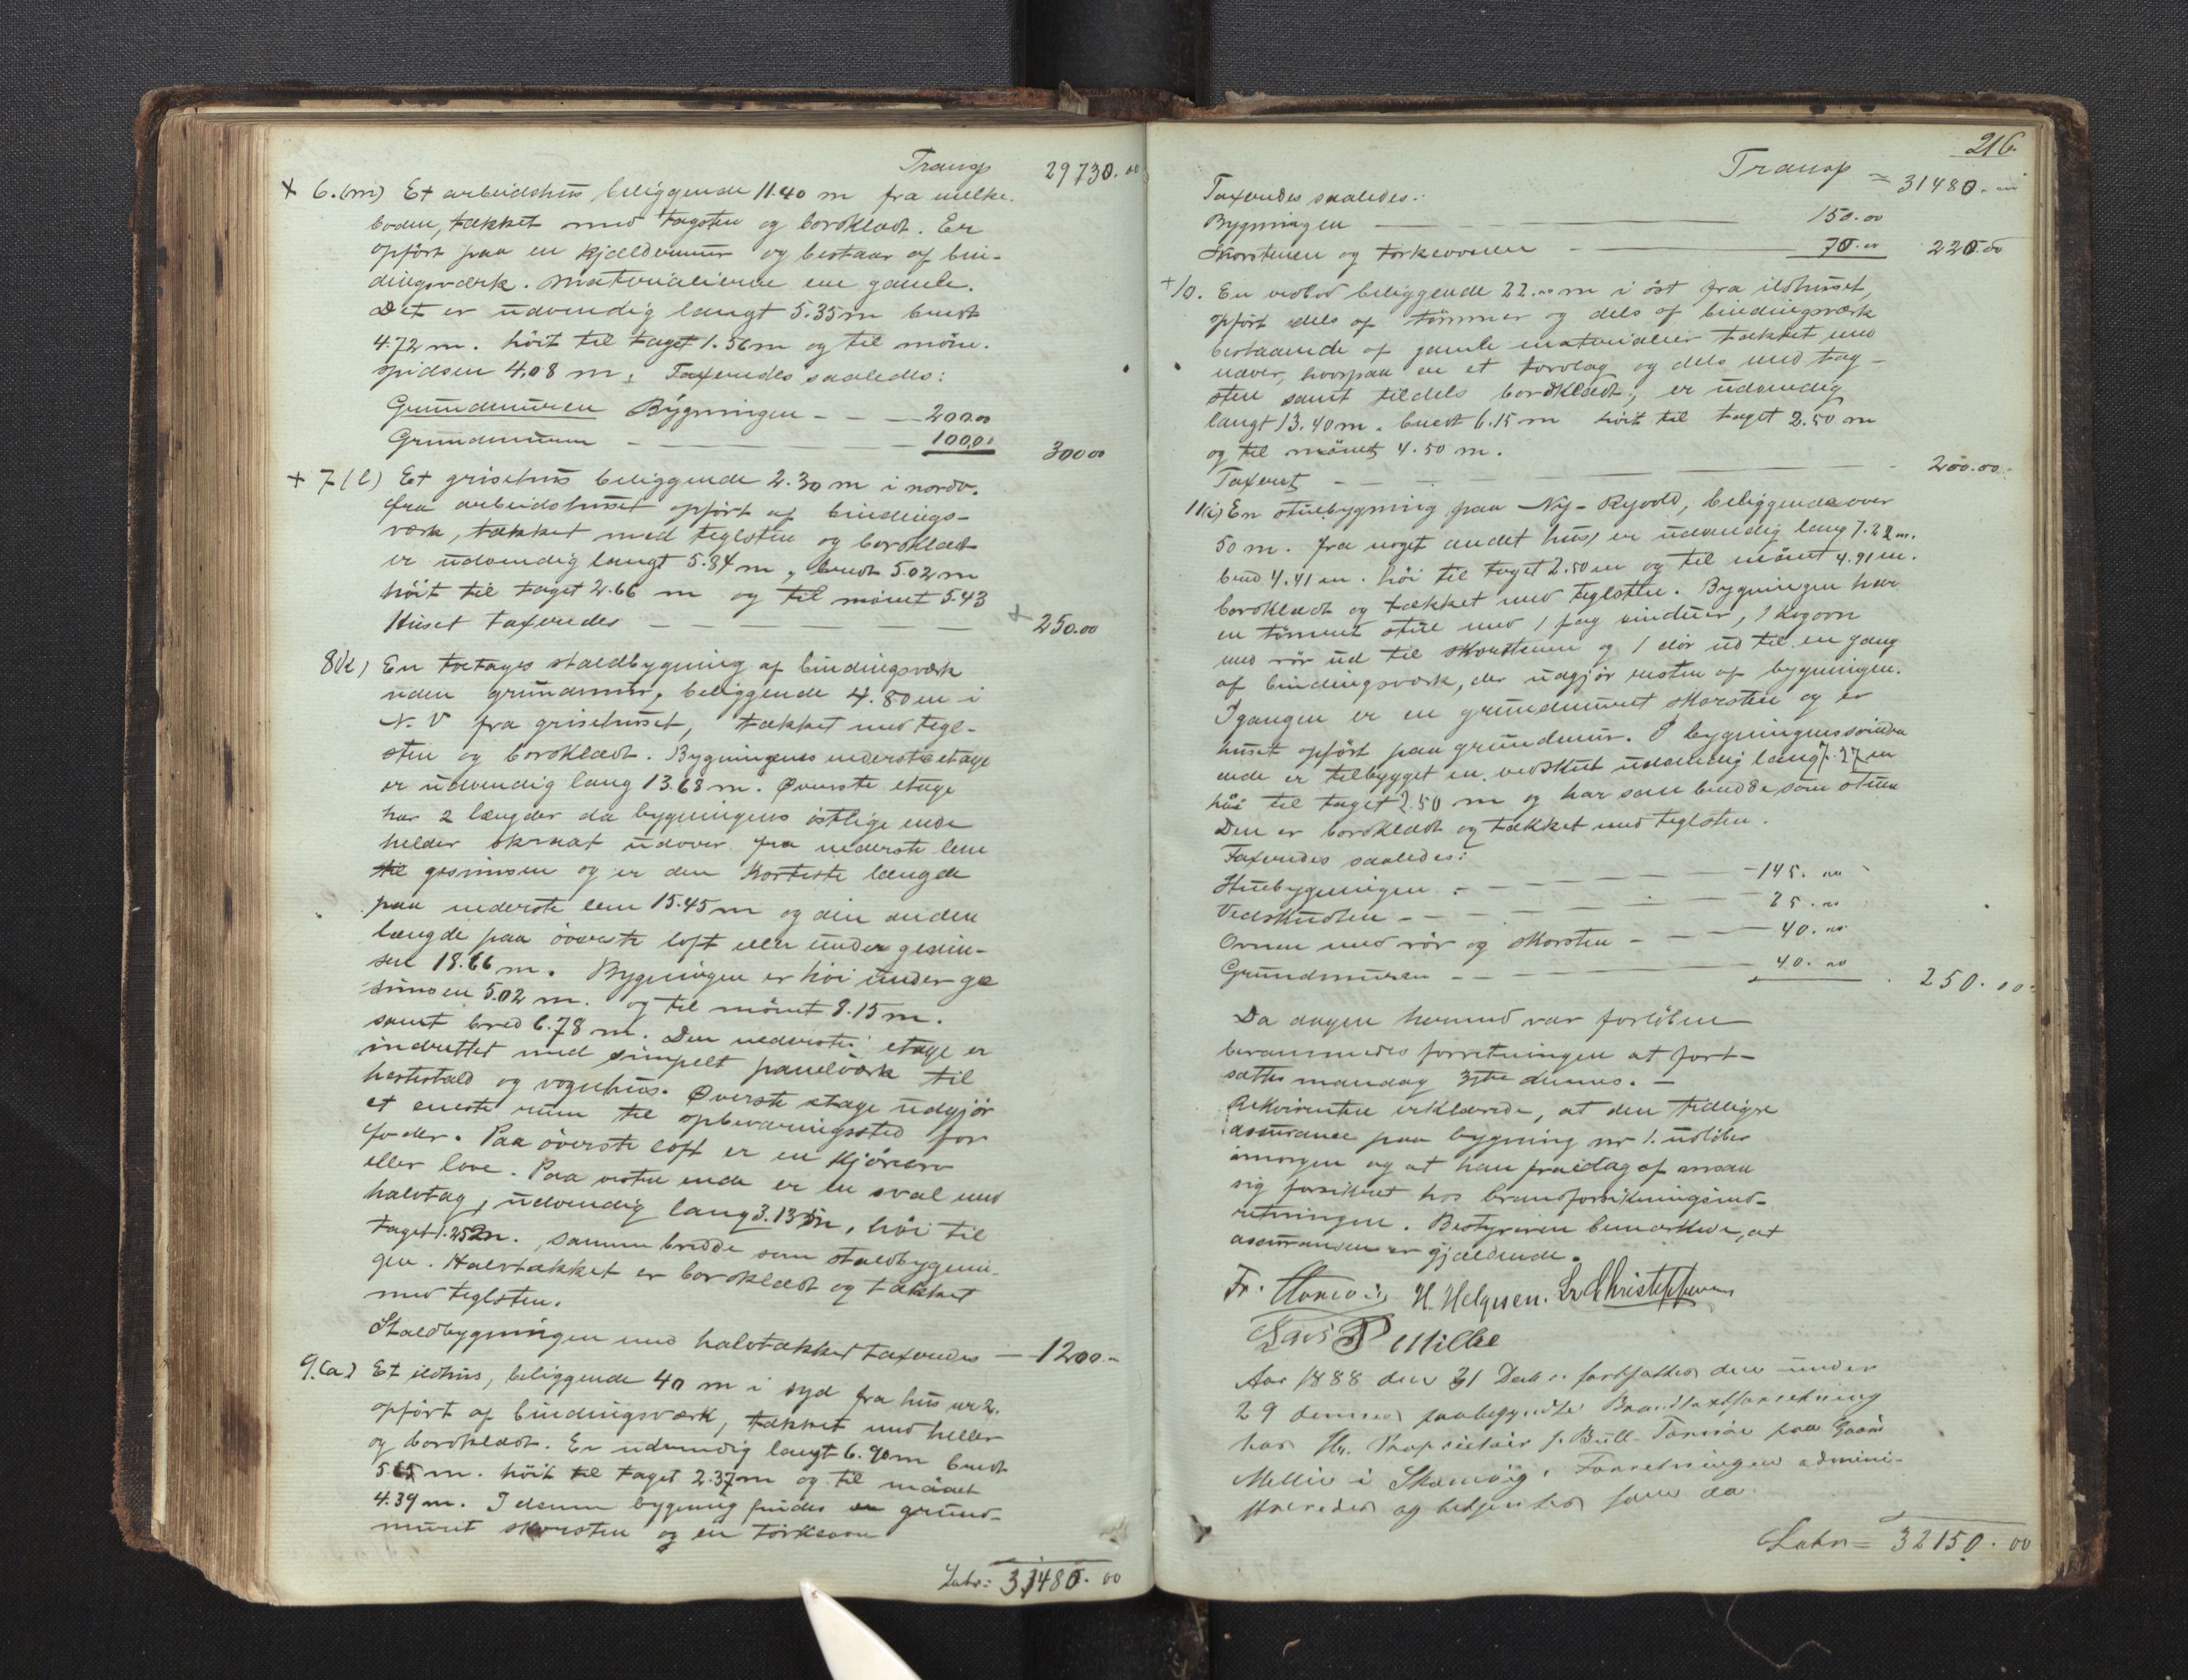 Transp 29730.00
+ 6.(m) Et arbeidshus beliggende 11.40 m fra melke-
boden, tækket med tagsten og bordklædt. Er
opført paa en kjældermur og bestaar af bin-
dingsværk. Materialierne ere gamle.
Det er udvendig langt 5.35 m bredt
4.72 m. høit til taget 1.56 m og til møne-
spidsen 4.08 m. Taxeredes saaledes:
Grundmuren Bygningen — — 200.00
Grundmuren — — 100.00 300.00
+ 7 (l) Et grisehus beliggende 2.30 m i nordv.
fra arbeidshuset opført af bindings-
værk, tækket med teglsten og bordklædt
er udvendig langt 5.84 m, bredt 5.02 m
høit til taget 2.66 m og til mønet 5.43
Huset taxeredes — — — + 250.00
8(k) En toetages staldbygning af bindingsværk
uden grundmur, beliggende 4.80 m i
N.V fra grisehuset, tækket med tegl-
sten og bordklædt. Bygningens underste etage
er udvendig lang 13.68 m. Øverste etage
har 2 længder da bygningens østlige ende
helder skraat udover fra nederste lem
til gesimsen og er den korteste længde
paa nederste lem 15.45 m og den anden
længde paa øverste loft eller under gesim-
sen 18.66 m. Bygningen er høi under ge
simsen 5.02 m. og til mønet 8.15 m.
samt bred 6.78 m. Den nederste etage er
indrettet med simpelt panelværk til
hestestald og vognhus. Øverste etage udgjør
et eneste rum til opbevaringssted for
foder. Paa øverste loft er en kjørebro
eller love. Paa vestre ende er en sval med
halvtag, udvendig lang 3.13 m, høi til
taget 1.25 m., samme bredde som staldbygnin-
gen. Halvtækket er bordklædt og tækket
med teglsten.
Staldbygningen med halvtækket taxeredes — 1200.-
9.(a) Et ildhus, beliggende 40 m i syd fra hus nr 2.
opført af bindingsværk, tækket med heller
og bordklædt. Er udvendig langt 6.90 m bredt
5.65 m. høit til taget 2.37 m og til mønet
4.39 m. I denne bygning findes en grund-
muret skorsten og en tørkeovn
Latr: 31480.00
216.
Transp = 31480.00
Taxeredes saaledes:
Bygningen — — 150.00
Skorstenen og tørkeovnen — — 70.00 220.00
+ 10. En vedbod beliggende 22.00 m i øst fra ildhuset,
opført dels af tømmer og dels af bindingsværk
bestaaende af gamle materialier tækket med
næver, hvorpaa er et torvlag og dels med tag-
sten samt tildels bordklædt, er udvendig
langt 13.40 m. bredt 6.15 m høit til taget 2.50 m
og til mønet 4.50 m.
Taxeret — — — 200.00
11(i) En stuebygning paa Ny-Ryvold, beliggende over
50 m. fra noget andet hus, er udvendig lang 7.22 m.
bred 4.41 m. høi til taget 2.50 m og til mønet 4.91 m.
bordklædt og tækket med teglsten. Bygningen har
en tømret stue med 1 fag vinduer, 1 kogovn
med rør ud til skorstenen og 1 dør ud til en gang
af bindingsværk, der udgjør resten af bygningen.
I gangen er en grundmuret skorsten og er
huset opført paa grundmur. I bygningens søndre
ende er tilbygget en vedskut udvendig lang 7.27 m
høi til taget 2.50 m og har samme bredde som stuen
Den er bordklædt og tækket med teglsten.
Taxeredes saaledes:
Stuebygningen — — 145.00
Vedskudten — — 25.00
Ovnen med rør og skorsten — — 40.00
Grundmuren — — 40.00 250.00
Da dagen hermed var forløben
berammedes forretningen at fort-
sættes mandag 31te dennes. —
Rekvirenten erklærede, at den tidligre
assurance paa bygning nr 1. udløber
imorgen og at han fraidag af ansaa
sig forsikret hos brandforsikringsind-
retningen. Bestyreren bemærkede, at
assurancen er gjældende.
Fr. H. Helgesen. Chr. Christophersen
Lars P Milde
Aar 1888 den 31 Decbr. fortsattes den under
29 dennes paabegyndte Brandtaxtforretning
hos Hr. Proprietair J. Bull Tornøe paa Gaard
Melli i Skanevig. Forretningen admini-
streredes og betjentes som da
Latr = 32150.00